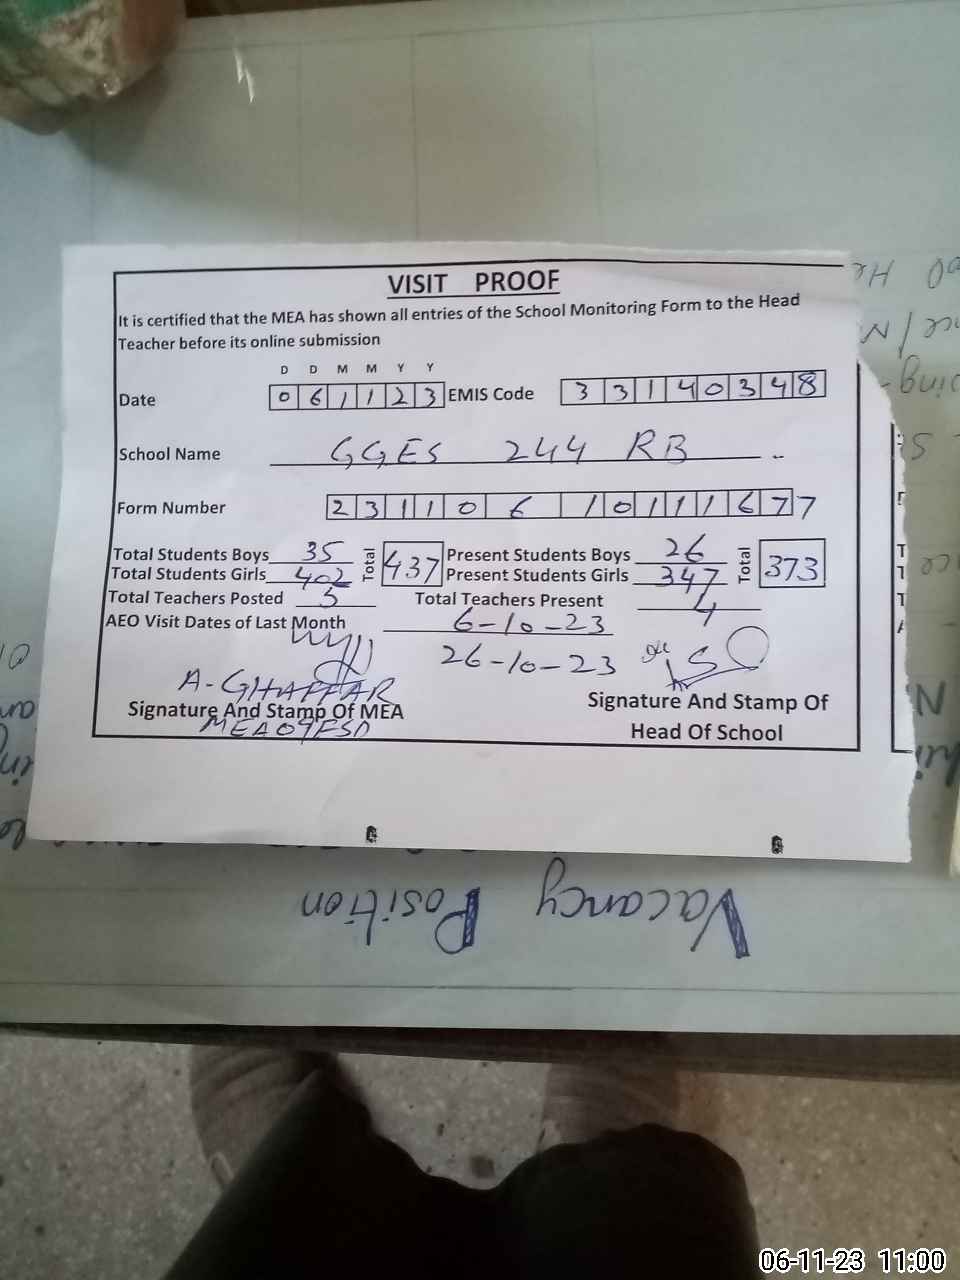 VISIT PROOF
It is certified that the MEA has shown all entries of the School Monitoring Form to the Head
Teacher before its online submission
D D M M Y Y
Date 0 6 1 1 2 3 EMIS Code 3 3 1 4 0 3 4 8
School Name GGES 244 RB
Form Number 2 3 1 1 0 6 1 0 1 1 1 6 7 7
Total Students Boys 35 Total 437 Present Students Boys 26 Total 373
Total Students Girls 402 Present Students Girls 347
Total Teachers Posted 5 Total Teachers Present 4
AEO Visit Dates of Last Month 6-10-23
26-10-23
A-GHAFFAR
Signature And Stamp Of MEA
MEA09FSD
Signature And Stamp Of
Head Of School
Vacancy Position
06-11-23 11:00